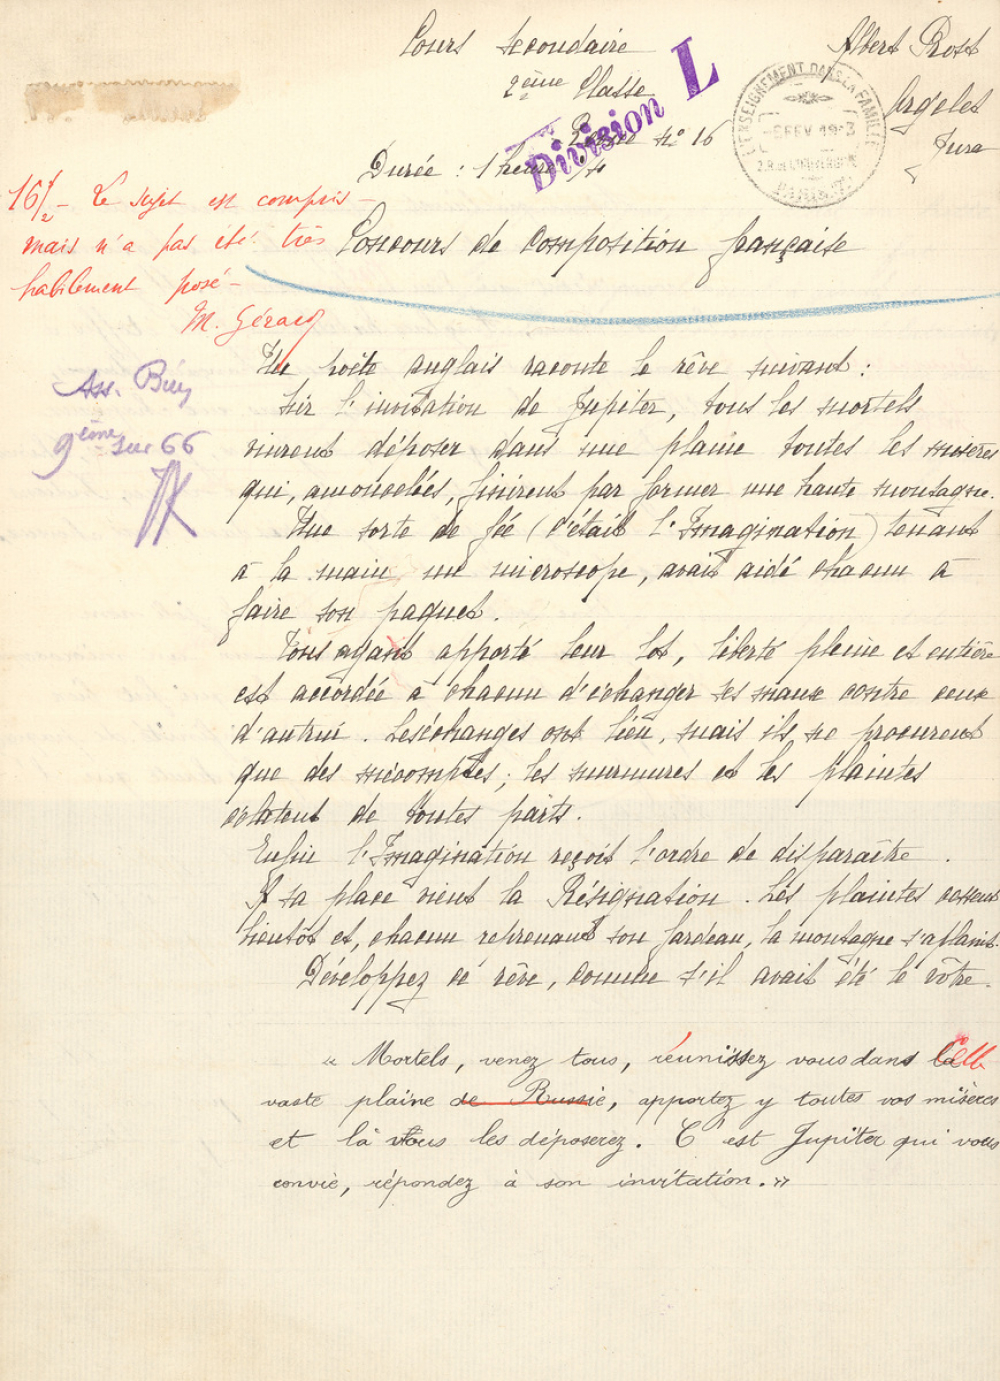 Cours secondaire
2ème Classe
Albert Prost
Argelet
Jura
Division L
n° 16
Durée : 1 heure
L'ENSEIGNEMENT DANS LA FAMILLE
PARIS
16/2 - Le sujet est compris -
mais n'a pas été très
habilement posé -
Concours de Composition française
Ass.
9ème 66
Un poète anglais raconte le rêve suivant :
Sur l'invitation de Jupiter, tous les mortels
vinrent déposer dans une plaine toutes les misères
qui, amoncelées, finirent par former une haute montagne.
Une sorte de fée (c'était l'Imagination) tenant
à la main un microscope, avait aidé chacun à
faire son paquet.
Tous ayant apporté leur lot, liberté pleine et entière
est accordée à chacun d'échanger ses maux contre ceux
d'autrui. Les échanges ont lieu, mais ils ne procurent
que des mécomptes ; les murmures et les plaintes
éclatent de toutes parts.
Enfin l'Imagination reçoit l'ordre de disparaître.
A sa place vient la Résignation. Les plaintes cessent
bientôt et, chacun reprenant son fardeau, la montagne s'aplanit.
Développez ce rêve, comme s'il avait été le vôtre.
« Mortels, venez tous, réunissez vous dans la
vaste plaine de Russie, apportez y toutes vos misères
et là vous les déposerez. C'est Jupiter qui vous
convie, répondez à son invitation. »